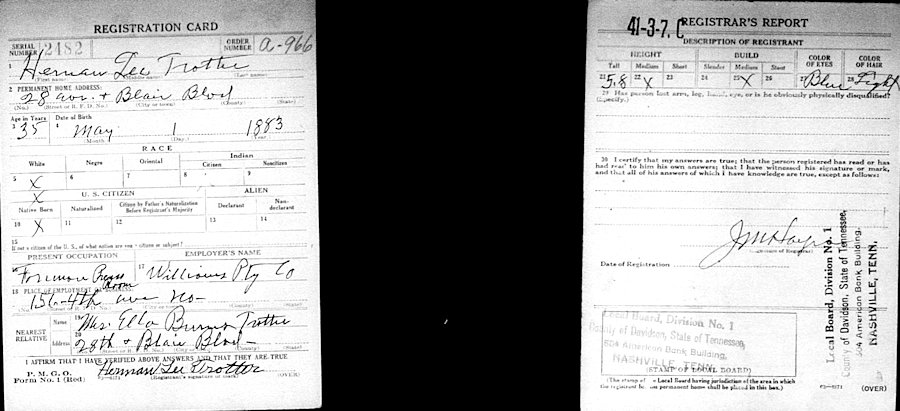 REGISTRATION CARD
SERIAL NUMBER 2482 ORDER NUMBER A-966
1 Herman Lee Trotter
(First name) (Middle name) (Last name)
2 PERMANENT HOME ADDRESS:
28 ave. + Blair Blvd
(No.) (Street or R. F. D. No.) (City or town) (County) (State)
Age in Years Date of Birth
3 35 4 May 1 1883
(Month) (Day) (Year)
RACE
White Negro Oriental Indian
Citizen Noncitizen
5 X 6 7 8 9
X
U. S. CITIZEN ALIEN
Native Born Naturalized Citizen by Father's Naturalization Before Registrant's Majority Declarant Non-declarant
10 X 11 12 13 14
15
If not a citizen of the U. S., of what nation are you a citizen or subject?
PRESENT OCCUPATION EMPLOYER'S NAME
16 Foreman Press Room 17 Williams Ptg Co
18 PLACE OF EMPLOYMENT OR BUSINESS:
156-4th ave no-
(No.) (County) (State)
NEAREST RELATIVE
Name 19 Mrs. Ella Burns Trotter
Address 20 28th + Blair Blvd-
I AFFIRM THAT I HAVE VERIFIED ABOVE ANSWERS AND THAT THEY ARE TRUE
P. M. G. O.
Form No. 1 (Red) Herman Lee Trotter
(Registrant's signature or mark) (OVER)
41-3-7. C REGISTRAR'S REPORT
DESCRIPTION OF REGISTRANT
HEIGHT BUILD COLOR OF EYES COLOR OF HAIR
Tall Medium Short Slender Medium Stout
21 5,8 22 X 23 24 25 X 26 27 Blue 28 Light
29 Has person lost arm, leg, hand, eye, or is he obviously physically disqualified?
(Specify.)
30 I certify that my answers are true; that the person registered has read or has
had read to him his own answers; that I have witnessed his signature or mark,
and that all of his answers of which I have knowledge are true, except as follows:
(Signature of Registrar)
Date of Registration
Local Board, Division No. 1
County of Davidson, State of Tennessee,
504 American Bank Building,
NASHVILLE, TENN.
(STAMP OF LOCAL BOARD)
(The stamp of the Local Board having jurisdiction of the area in which
the registrant has his permanent home shall be placed in this box.)
(OVER)
Local Board, Division No. 1
County of Davidson, State of Tennessee,
504 American Bank Building,
NASHVILLE, TENN.